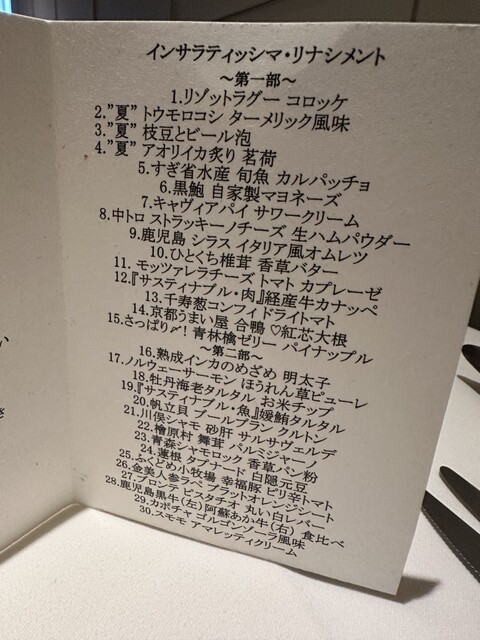 インサラティッシマ・リナシメント
～第一部～
1.リゾットラグー コロッケ
2.”夏” トウモロコシ ターメリック風味
3.”夏” 枝豆とビール泡
4.”夏” アオリイカ炙り 茗荷
5.すぎ省水産 旬魚 カルパッチョ
6.黒鮑 自家製マヨネーズ
7.キャヴィアパイ サワークリーム
8.中トロ ストラッキーノチーズ 生ハムパウダー
9.鹿児島 シラス イタリア風オムレツ
10.ひとくち椎茸 香草バター
11. モッツァレラチーズ トマト カプレーゼ
12.『サスティナブル・肉』経産牛カナッペ
13.千寿葱コンフィドライトマト
14.京都うまい屋 合鴨 ♡紅芯大根
15.さっぱり〆! 青林檎ゼリー パイナップル
～第二部～
16.熟成インカのめざめ 明太子
17.ノルウェーサーモン ほうれん草ピューレ
18.牡丹海老タルタル お米チップ
19.『サスティナブル・魚』媛鮪タルタル
20.帆立貝 ブールブラン クルトン
21.川俣シャモ 砂肝 サルサヴェルデ
22.檜原村 舞茸 パルミジャーノ
23.青森シャモロック 香草パン粉
24.蓮根 タプナード 白隠元豆
25.ふくどめ小牧場 幸福豚 ピリ辛トマト
26.金美人参ラペ ブラットオレンジシート
27.ブロンテ ピスタチオ 丸い白レバー
28.鹿児島黒牛(左)阿蘇あか牛(右) 食比べ
29.カボチャ ゴルゴンゾーラ風味
30.スモモ アマレッティクリーム